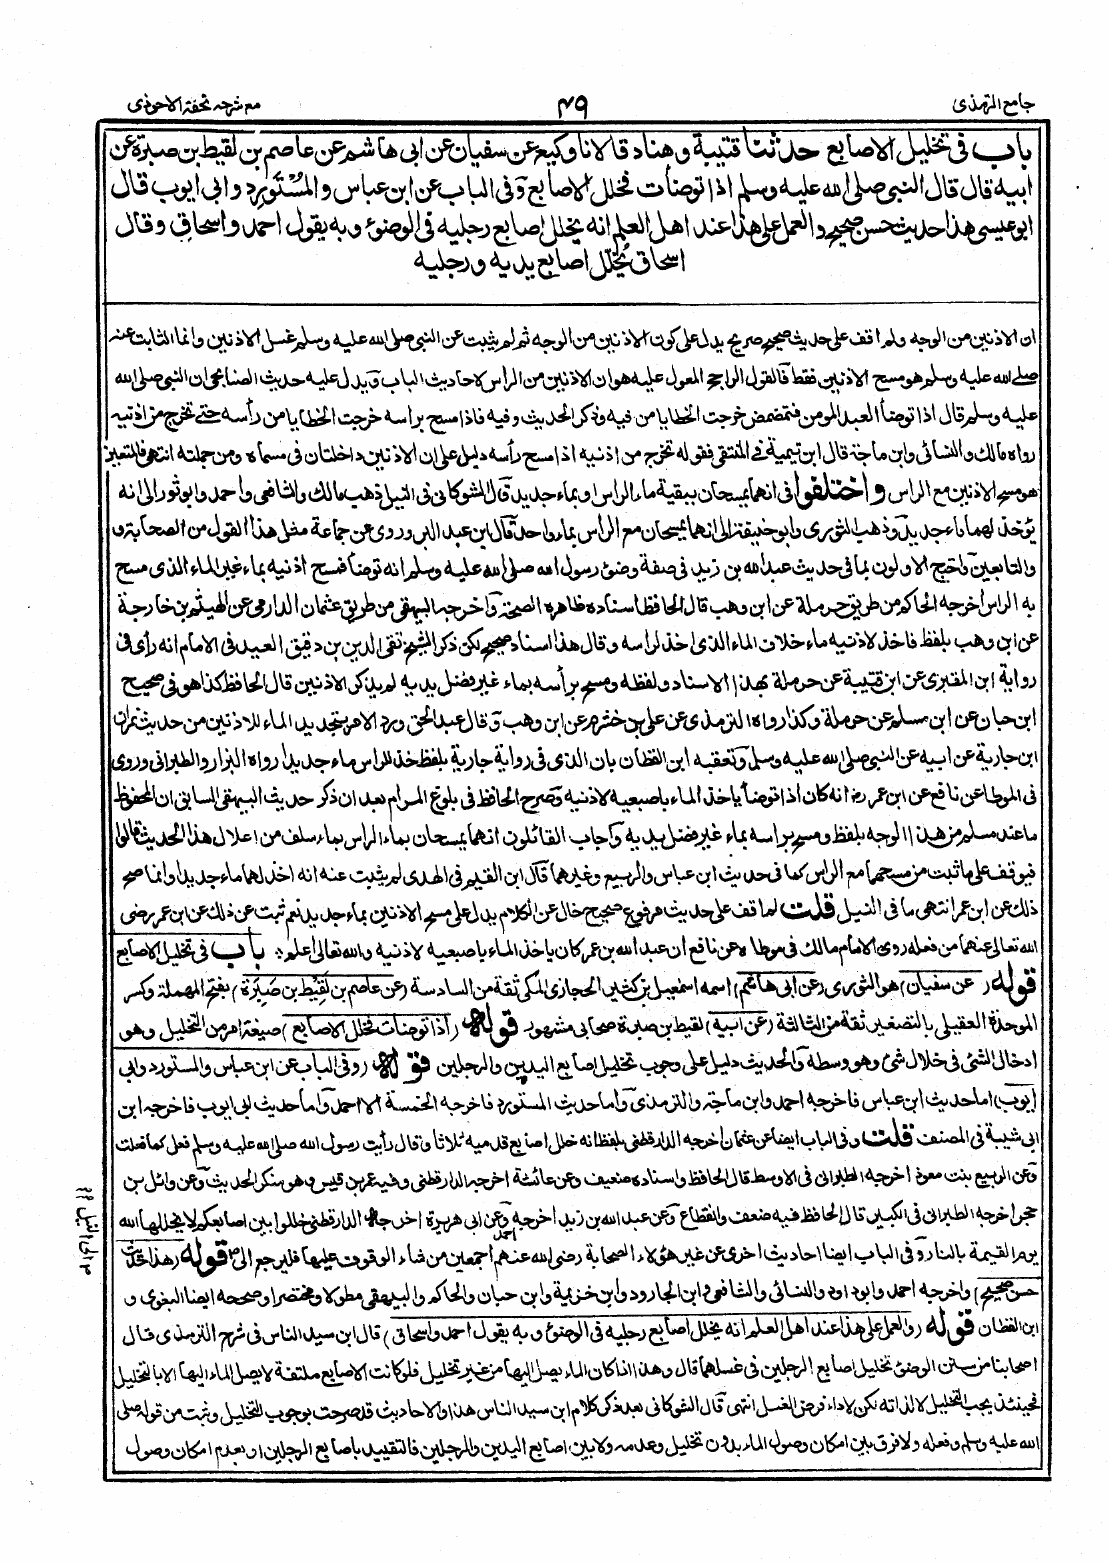 جامع الترمذي
٤٩
مع شرحه تحفة الاحوذي
باب في تخليل الاصابع حدثنا قتيبة وهناد قالا نا وكيع عن سفيان عن ابى هاشم عن عاصم بن لقيط بن صبرة عن
ابيه قال قال النبي صلى الله عليه وسلم اذا توضأت فخلل الاصابع وفى الباب عن ابن عباس والمُسْتَورِد وابى ايوب قال
ابو عيسى هذا حديث حسن صحيح والعمل على هذا عند اهل العلم انه يخلل اصابع رجليه فى الوضوء وبه يقول احمد واسحاق وقال
اسحاق يُخلّل اصابع يديه ورجليه
ان الاذنين من الوجه ولم اقف على حديث صحيح صريح يدل على كون الاذنين من الوجه ثم لم يثبت عن النبي صلى الله عليه وسلم غسل الاذنين وانما الثابت عنه
صلى الله عليه وسلم هو مسح الاذنين فقط فالقول الراجح المعول عليه هو ان الاذنين من الراس لاحاديث الباب ويدل عليه حديث الصنابحى ان النبي صلى الله
عليه وسلم قال اذا توضأ العبد المومن فتمضمض خرجت الخطايا من فيه وذكر الحديث وفيه فاذا مسح برأسه خرجت الخطايا من رأسه حتى تخرج من اذنيه
رواه مالك والنسائى وابن ماجة قال ابن تيمية في المنتقى فقوله تخرج من اذنيه اذا مسح رأسه دليل على ان الاذنين داخلتان فى مسماه ومن جملته انتهى فالمتعين
هو مسح الاذنين مع الراس واختلفوا فى انهما يمسحان ببقية ماء الراس او بماء جديد قال الشوكانى فى النيل ذهب مالك والشافعى واحمد وابو ثور الى انه
يؤخذ لهما ماء جديد وذهب الثورى وابو حنيفة الى انهما يمسحان مع الراس بماء واحد قال ابن عبد البر وروى عن جماعة مثل هذا القول من الصحابة و
والتابعين واحتج الاولون بما فى حديث عبد الله بن زيد فى صفة وضوء رسول الله صلى الله عليه وسلم انه توضأ فمسح اذنيه بماء غير الماء الذى مسح
به الراس اخرجه الحاكم من طريق حرملة عن ابن وهب قال الحافظ اسناده ظاهره الصحة واخرجه البيهقى من طريق عثمان الدارمى عن الهيثم بن خارجة
عن ابن وهب بلفظ فاخذ لاذنيه ماء خلاف الماء الذى اخذ لراسه وقال هذا اسناد صحيح لكن ذكر الشيخ تقى الدين بن دقيق العيد فى الامام انه رأى فى
رواية ابن المقبرى عن ابن قتيبة عن حرملة بهذا الاسناد ولفظه ومسح برأسه بماء غير فضل يديه لم يذكر الاذنين قال الحافظ كذا هو فى صحيح
ابن حبان عن ابن مسلم عن حرملة وكذا رواه الترمذى عن على بن خشرم عن ابن وهب وقال عبد الحق ورد الامر بتجديد الماء للاذنين من حديث نمران
ابن جارية عن ابيه عن النبي صلى الله عليه وسلم وتعقبه ابن القطان بان الذى فى رواية جارية بلفظ خذ للراس ماء جديدا رواه البزار والطبرانى وروى
فى الموطا عن نافع عن ابن عمر رض انه كان اذا توضأ ياخذ الماء باصبعيه لاذنيه وصرح الحافظ فى بلوغ المرام بعد ان ذكر حديث البيهقى السابق ان المحفوظ
ما عند مسلم من هذا الوجه بلفظ ومسح براسه بماء غير فضل يديه واجاب القائلون انهما يمسحان بماء الراس بما سلف من اعلال هذا الحديث قالوا
فيوقف على ما ثبت من مسحهما مع الراس كما فى حديث ابن عباس والربيع وغيرهما قال ابن القيم فى الهدى لم يثبت عنه انه اخذ لهما ماء جديدا وانما صح
ذلك عن ابن عمر انتهى ما فى النيل قلت لم اقف على حديث مرفوع صحيح خال عن الكلام يدل على مسح الاذنين بماء جديد نعم ثبت ذلك عن ابن عمر رضى
الله تعالى عنهما من فعله روى الامام مالك فى موطاه عن نافع ان عبد الله بن عمر كان ياخذ الماء باصبعيه لاذنيه والله تعالى اعلم : باب فى تخليل الاصابع
قوله (عن سفيان) هو الثورى (عن ابى هاشم) اسمه اسمعيل بن كثير الحجازى المكى ثقة من السادسة (عن عاصم بن لقيط بن صَبِرَة) بفتح المهملة وكسر
الموحدة العقيلى بالتصغير ثقة من الثالثة (عن ابيه) لقيط بن صبرة صحابى مشهور قوله (اذا توضأت فخلل الاصابع) صيغة امر من التخليل وهو
ادخال الشئ فى خلال شئ وهو وسطه والحديث دليل على وجوب تخليل اصابع اليدين والرجلين قوله (وفى الباب عن ابن عباس والمستورد وابى
ايوب) اما حديث ابن عباس فاخرجه احمد وابن ماجة والترمذى واما حديث المستورد فاخرجه الخمسة الا احمد واما حديث ابى ايوب فاخرجه ابن
ابى شيبة فى المصنف قلت وفى الباب ايضا عن عثمان اخرجه الدارقطنى بلفظ انه خلل اصابع قدميه ثلاثا وقال رأيت رسول الله صلى الله عليه وسلم فعل كما فعلت
وعن الربيع بنت معوذ اخرجه الطبرانى فى الاوسط قال الحافظ واسناده ضعيف وعن عائشة اخرجه الدارقطنى وفيه عمر بن قيس وهو منكر الحديث وعن وائل بن
حجر اخرجه الطبرانى فى الكبير قال الحافظ فيه ضعف وانقطاع وعن عبد الله بن زيد اخرجه احمد وعن ابى هريرة اخرجه الدارقطنى خللوا بين اصابعكم لا يخللها الله
يوم القيمة بالنار وفى الباب ايضا احاديث اخرى عن غير هؤلاء الصحابة رضى الله عنهم اجمعين من شاء الوقوف عليها فليرجع الى قوله (هذا حديث
حسن صحيح) واخرجه احمد وابو داود والنسائى والشافعى وابن الجارود وابن خزيمة وابن حبان والحاكم والبيهقى مطولا ومختصرا وصححه ايضا البغوى و
ابن القطان قوله (والعمل على هذا عند اهل العلم انه يخلل اصابع رجليه فى الوضوء وبه يقول احمد واسحاق) قال ابن سيد الناس فى شرح الترمذى قال
اصحابنا من سنن الوضوء تخليل اصابع الرجلين فى غسلهما قال وهذا اذا كان الماء يصل اليها من غير تخليل فلو كانت الاصابع ملتفة لا يصل الماء اليها الا بالتخليل
فحينئذ يجب التخليل لا لذاته لكن لاداء فرض الغسل انتهى قال الشوكانى بعد ذكر كلام ابن سيد الناس هذا والاحاديث قد صرحت بوجوب التخليل وثبت من قوله صلى
الله عليه وسلم وفعله ولا فرق بين امكان وصول الماء بدون تخليل وعدمه ولا بين اصابع اليدين والرجلين فالتقييد باصابع الرجلين او بعدم امكان وصول